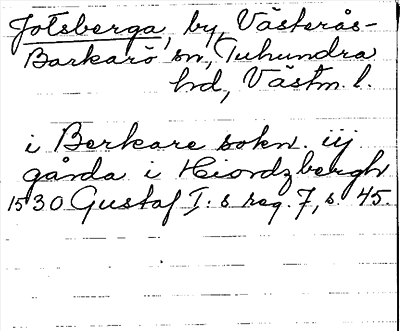 Jotsberga, by, Västerås-
Barkarö sn, Tuhundra
hd, Västm. l.
i Berkare sokn. iij
gårda i Hiordzbergh
1530 Gustaf I:s reg. 7, s. 45.